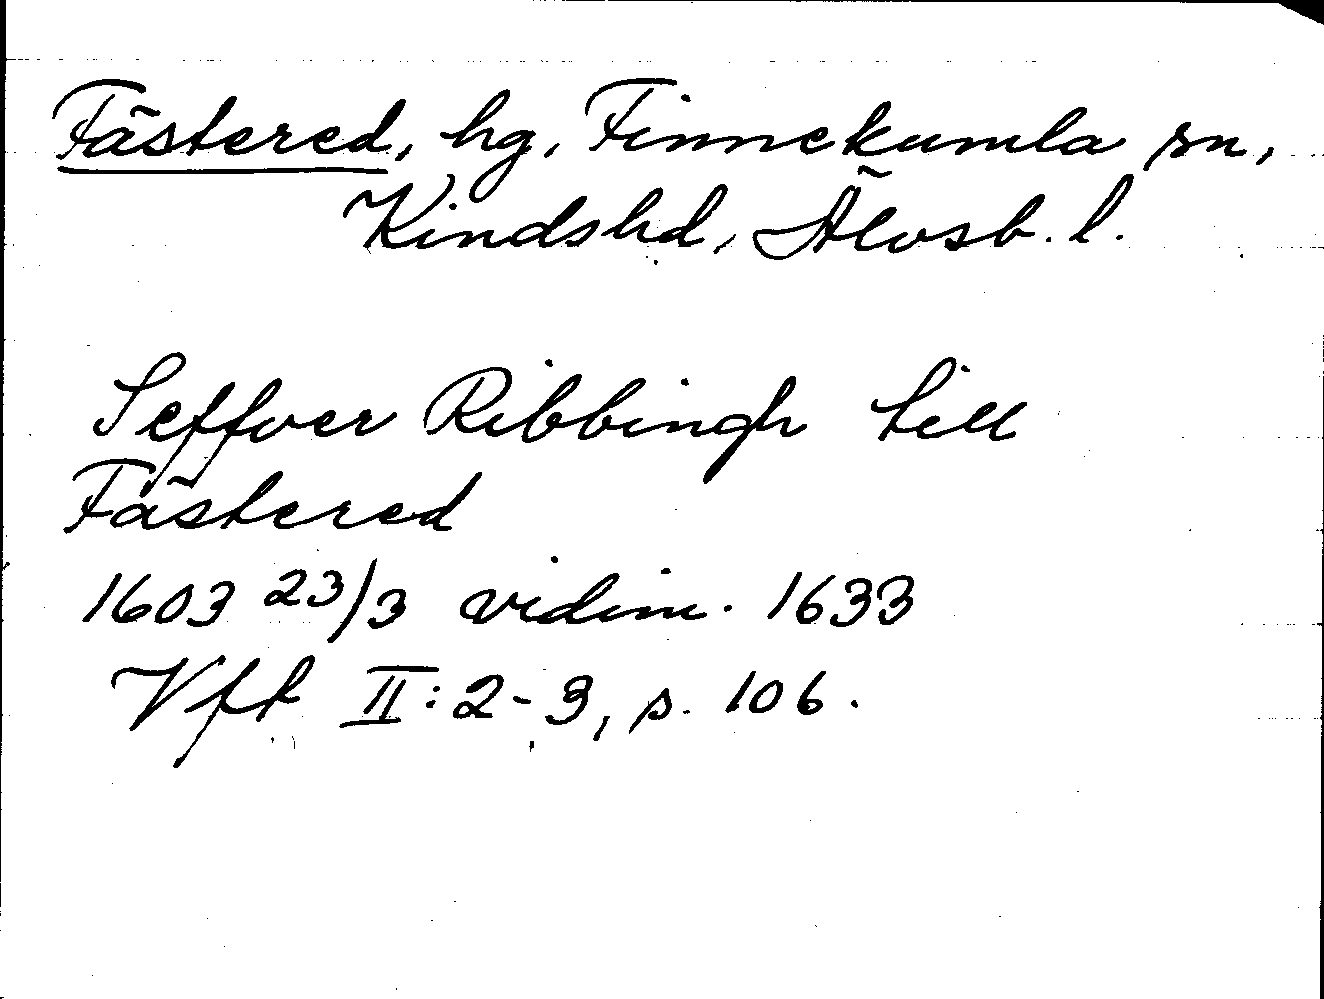 Fästered, hg, Finnekumla sn,
Kindshd, Älvsb. l.
Seffver Ribbingh till
Fästered
1603 23/3 vidim. 1633
Vft II:2-3, s. 106.